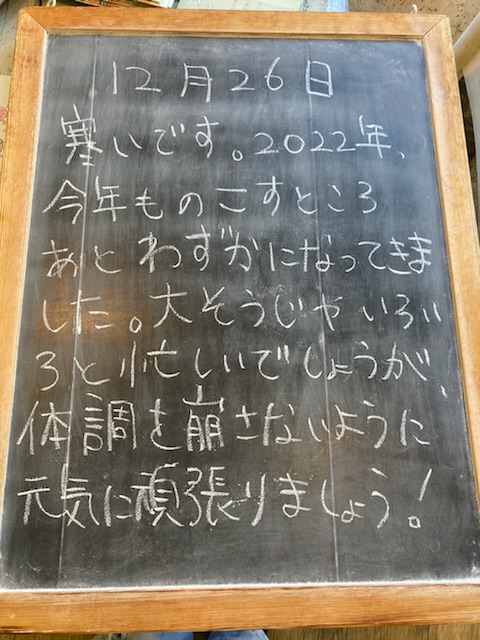 12月26日
寒いです。2022年、
今年ものこすところ
あとわずかになってきま
した。大そうじやいろい
ろと忙しいでしょうが、
体調を崩さないように
元気に頑張りましょう!